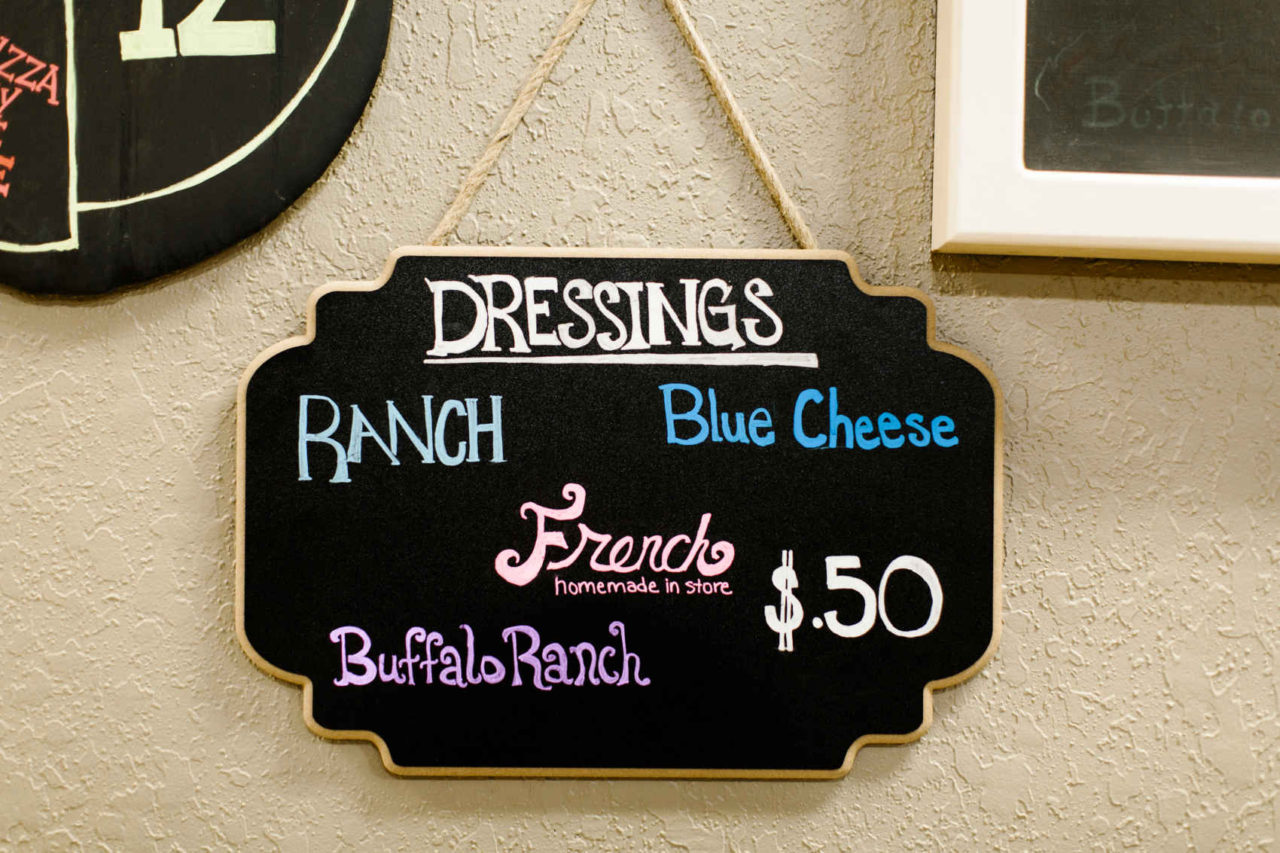 12
IZZA
Buffalo
DRESSINGS
RANCH
Blue Cheese
French
homemade in store
$.50
Buffalo Ranch